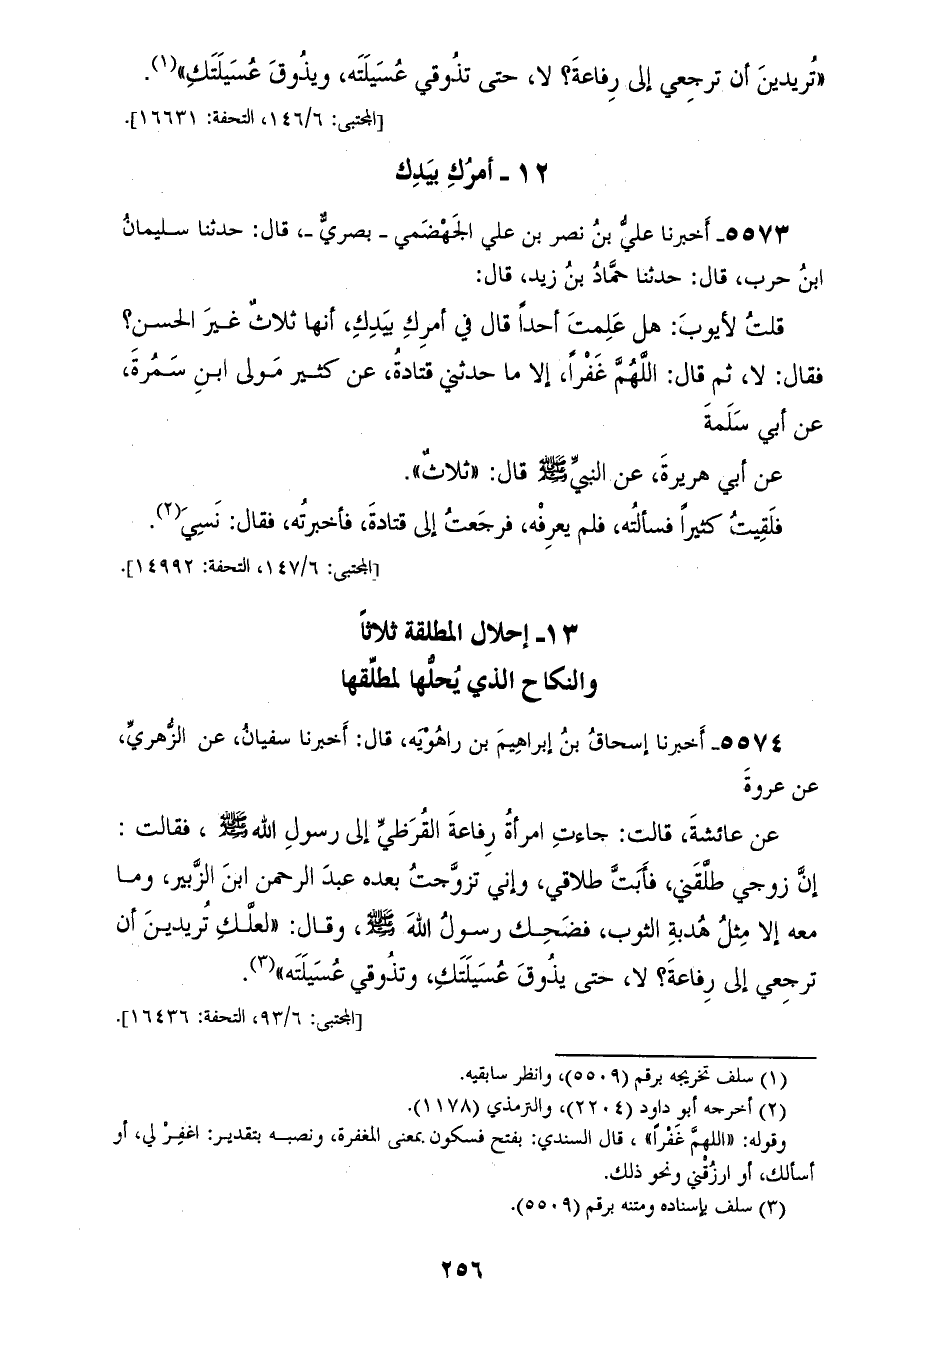 «تُريدينَ أن ترجِعي إلى رِفاعةَ؟ لا، حتى تذُوقي عُسَيلَتَه، ويذُوقَ عُسَيلَتَكِ»(١).
[المجتبى: ١٤٦/٦، التحفة: ١٦٦٣١].
١٢ - أمرُكِ بيَدِك
٥٥٧٣ـ أَخبرنا عليُّ بنُ نصر بن علي الجَهْضَمي ـ بصريٌّ ـ، قال: حدثنا سليمانُ
ابنُ حرب، قال: حدثنا حمَّادُ بنُ زيد، قال:
قلتُ لأيوبَ: هل عَلِمتَ أحداً قال في أمرِكِ بيَدِكِ، أنها ثلاثٌ غيرَ الحسن؟
فقال: لا، ثم قال: اللَّهُمَّ غَفْراً، إلا ما حدثني قتادةُ، عن كثير مَولى ابنِ سَمُرةَ،
عن أبي سَلَمةَ
عن أبي هريرةَ، عن النبيِّ ﷺ قال: «ثلاثٌ».
فلَقِيتُ كثيراً فسألتُه، فلم يعرِفْه، فرجَعتُ إلى قتادةَ، فأخبرتُه، فقال: نَسِيَ(٢).
[المجتبى: ١٤٧/٦، التحفة: ١٤٩٩٢].
١٣ـ إحلال المطلقة ثلاثاً
والنكاح الذي يُحلُّها لمطلّقها
٥٥٧٤ـ أخبرنا إسحاقُ بنُ إبراهِيمَ بن راهُوْيَه، قال: أَخبرنا سفيانُ، عن الزُّهريِّ،
عن عروةَ
عن عائشةَ، قالت: جاءتِ امرأةُ رِفاعةَ القُرَظيِّ إلى رسولِ الله ﷺ ، فقالت :
إنَّ زوجي طلَّقَني، فأَبَتَّ طلاقي، وإني تزوَّجتُ بعده عبدَ الرحمن ابنَ الزَّبير، وما
معه إلا مِثلُ هُدبةِ الثوب، فضَحِك رسولُ اللهَ ﷺ، وقال: «لعلَّكِ تُريدينَ أن
ترجعِي إلى رِفاعةَ؟ لا، حتى يذُوقَ عُسَيلَتَكِ، وتذُوقي عُسَيلَتَه»(٣).
[المجتبى: ٩٣/٦، التحفة: ١٦٤٣٦].
(١) سلف تخريجه برقم (٥٥٠٩)، وانظر سابقيه.
(٢) أخرجه أبو داود (٢٢٠٤)، والترمذي (١١٧٨).
وقوله: «اللهمَّ غَفْراً» ، قال السندي: بفتح فسكون بمعنى المغفرة، ونصبه بتقدير: اغفِرْ لي، أو
أسألك، أو ارزُقْني ونحو ذلك.
(٣) سلف بإسناده ومتنه برقم (٥٥٠٩).
٢٥٦